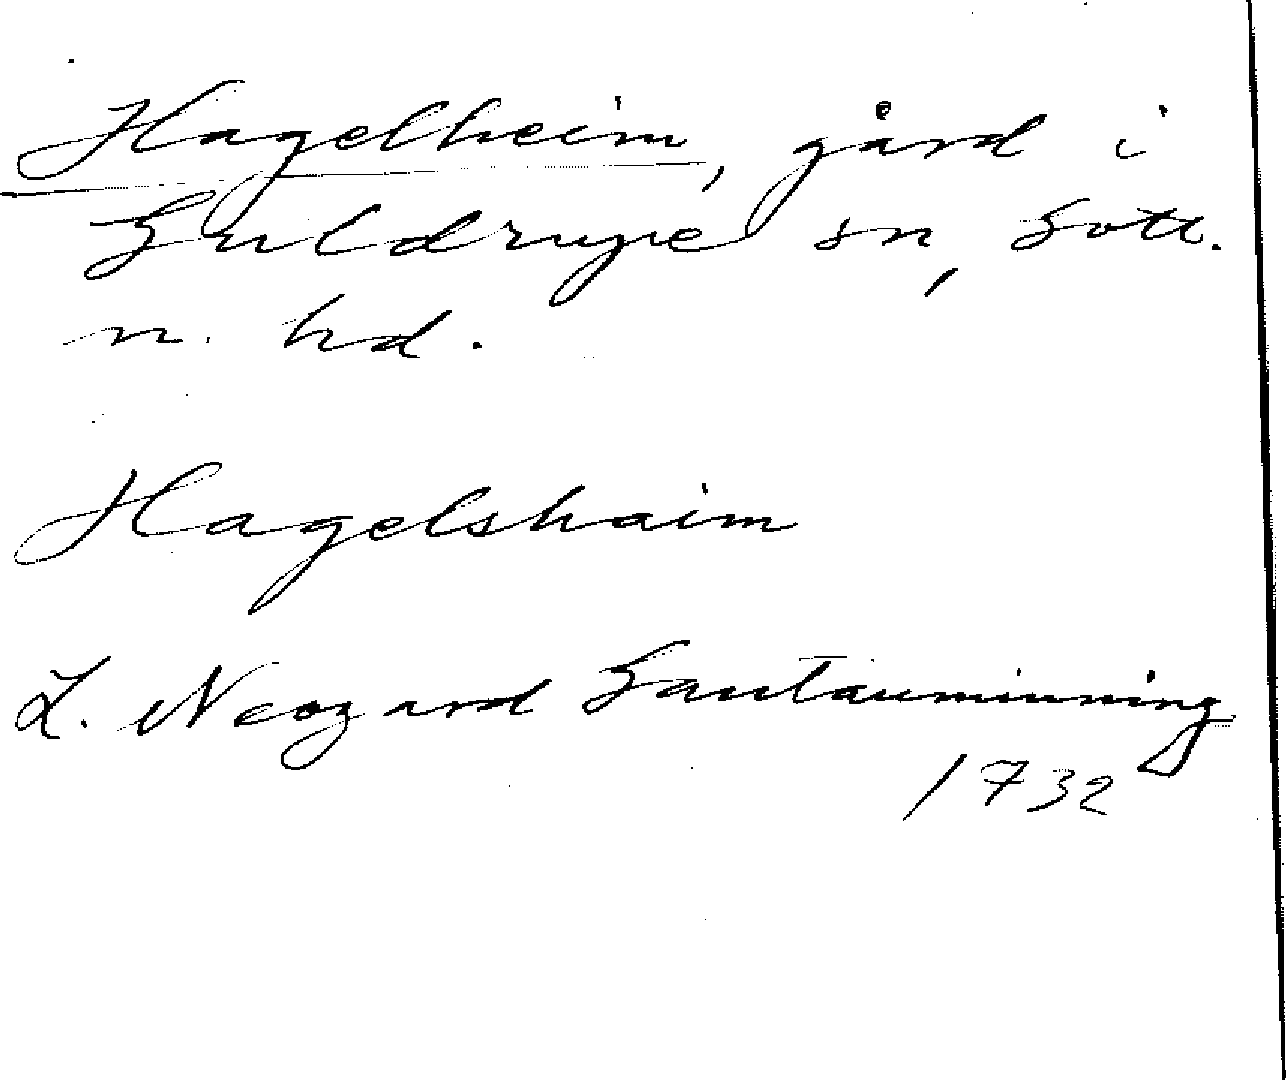 Hagelheim, gård i
Guldrupe sn, Gotl.
n. hd.
Hagelshaim
L. Neogard Gautauminning
1732